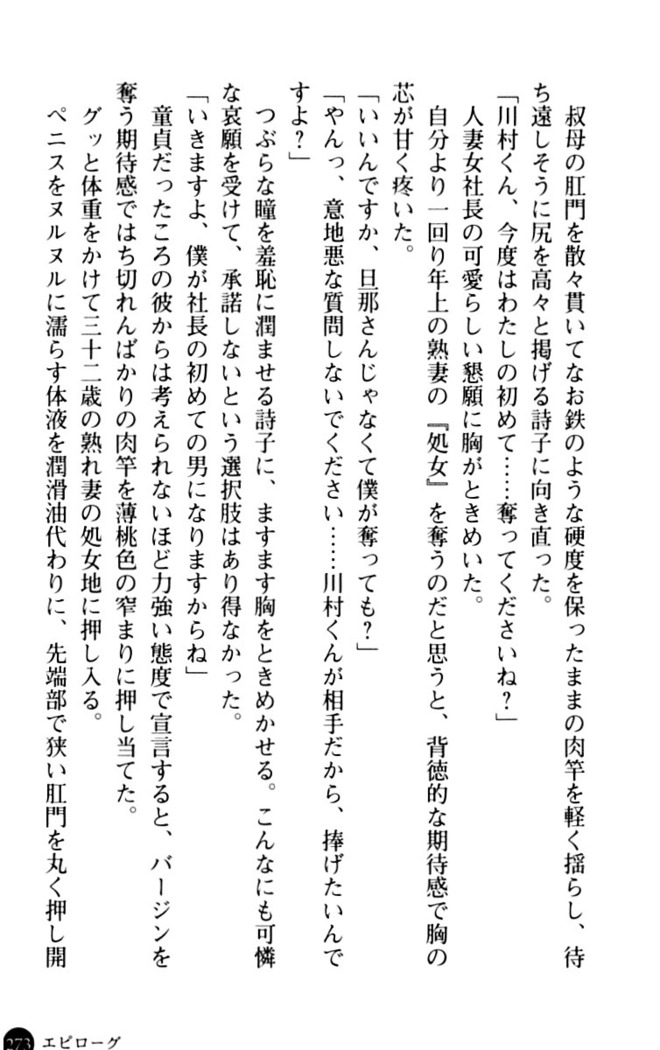 叔母の肛門を散々貫いてなお鉄のような硬度を保ったままの肉竿を軽く揺らし、待
ち遠しそうに尻を高々と掲げる詩子に向き直った。
「川村くん、今度はわたしの初めて……奪ってくださいね?」
人妻女社長の可愛らしい懇願に胸がときめいた。
自分より一回り年上の熟妻の『処女』を奪うのだと思うと、背徳的な期待感で胸の
芯が甘く疼いた。
「いいんですか、旦那さんじゃなくて僕が奪っても?」
「やんっ、意地悪な質問しないでください……川村くんが相手だから、捧げたいんで
すよ?」
つぶらな瞳を羞恥に潤ませる詩子に、ますます胸をときめかせる。こんなにも可憐
な哀願を受けて、承諾しないという選択肢はあり得なかった。
「いきますよ、僕が社長の初めての男になりますからね」
童貞だったころの彼からは考えられないほど力強い態度で宣言すると、バージンを
奪う期待感ではち切れんばかりの肉竿を薄桃色の窄まりに押し当てた。
グッと体重をかけて三十二歳の熟れ妻の処女地に押し入る。
ペニスをヌルヌルに濡らす体液を潤滑油代わりに、先端部で狭い肛門を丸く押し開
273 エピローグ